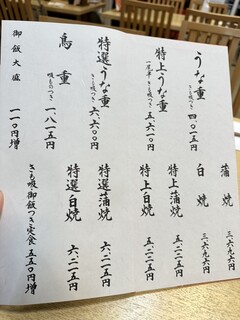 うな重
きも吸つき
四、〇一五円
特上うな重
一尾半・きも吸つき
五、六一〇円
特選うな重
きも吸つき
六、六〇〇円
鳥重
吸ものつき
一、八一五円
御飯大盛
一一〇円増
蒲焼
三、六九六円
白焼
三、六九六円
特上蒲焼
五、二二五円
特上白焼
五、二二五円
特選蒲焼
六、二一五円
特選白焼
六、二一五円
きも吸御飯つき定食
五五〇円増